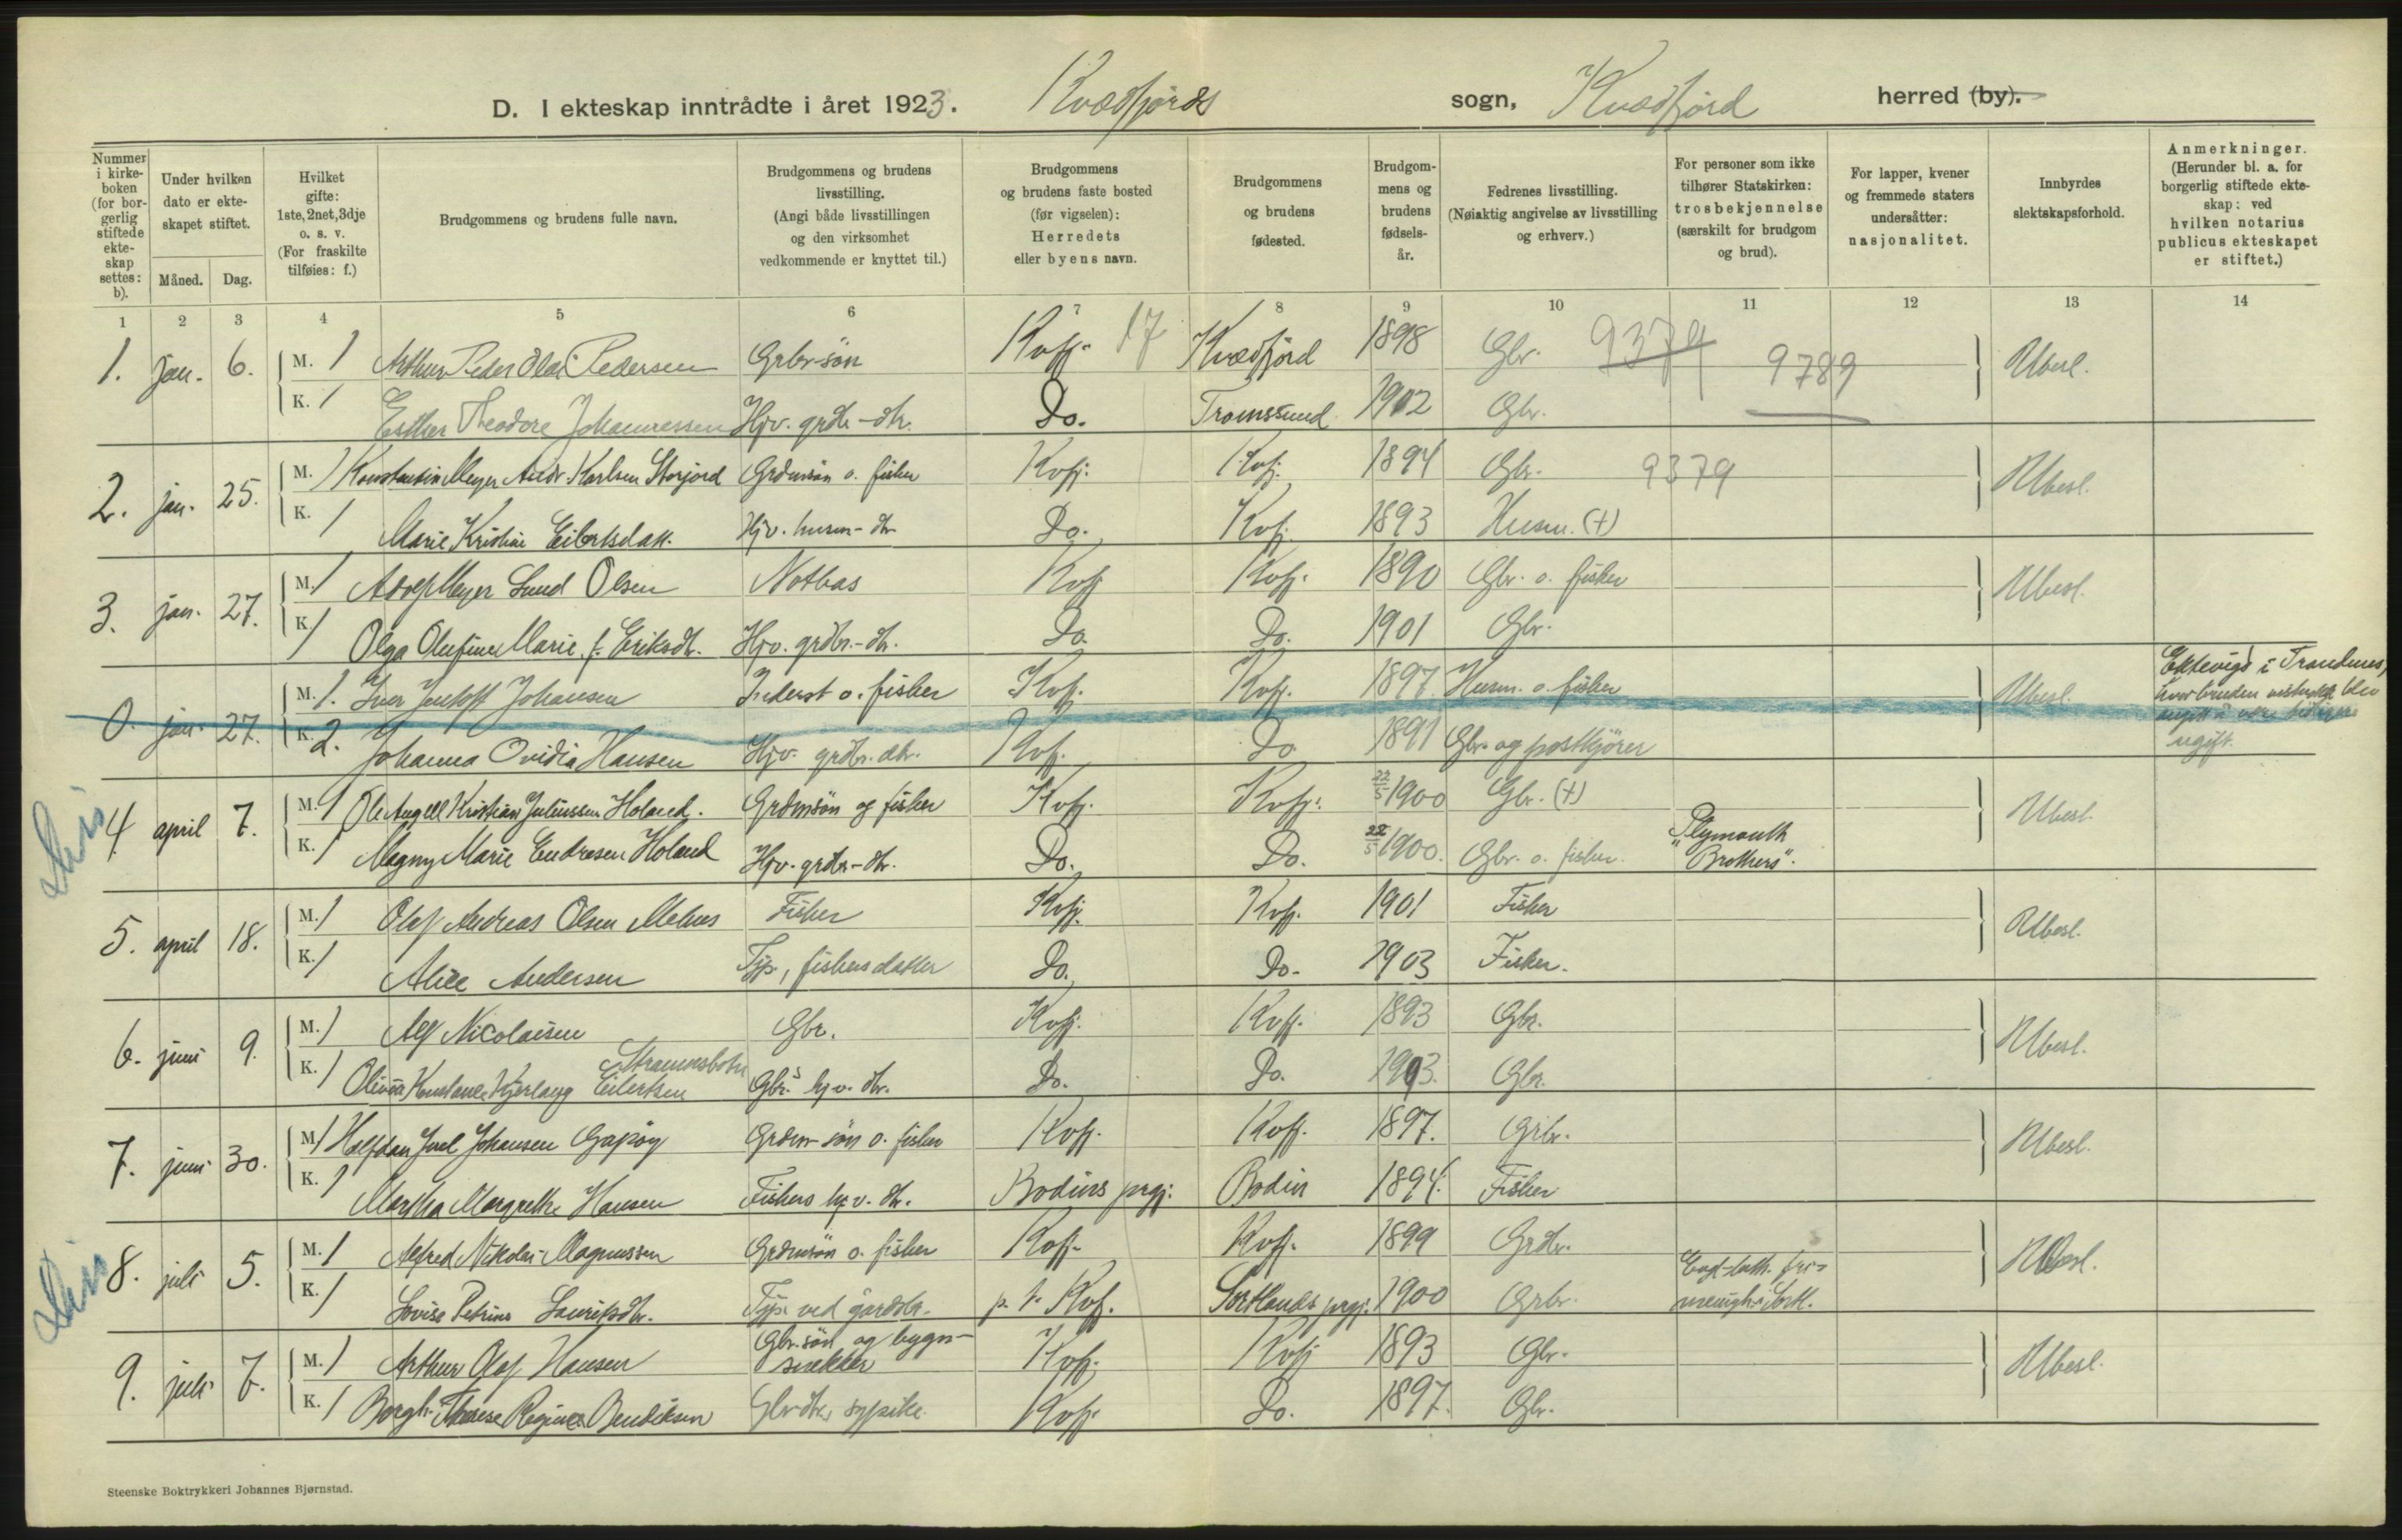 D. I ekteskap inntrådte i året 1923. Kvædfjords sogn, Kvædfjord herred (by).
Nummer i kirke-boken (for bor-gerlig stiftede ekte-skap settes: b).
Under hvilken dato er ekte-skapet stiftet.
Måned. Dag.
Hvilket gifte: 1ste, 2net, 3dje o. s. v. (For fraskilte tilføies: f.)
Brudgommens og brudens fulle navn.
Brudgommens og brudens livsstilling. (Angi både livsstillingen og den virksomhet vedkommende er knyttet til.)
Brudgommens og brudens faste bosted (før vigselen): Herredets eller byens navn.
Brudgommens og brudens fødested.
Brudgom-mens og brudens fødsels-år.
Fedrenes livsstilling. (Nøiaktig angivelse av livsstilling og erhverv.)
For personer som ikke tilhører Statskirken: trosbekjennelse (særskilt for brudgom og brud).
For lapper, kvener og fremmede staters undersåtter: nasjonalitet.
Innbyrdes slektskapsforhold.
Anmerkninger. (Herunder bl. a. for borgerlig stiftede ekte-skap: ved hvilken notarius publicus ekteskapet er stiftet.)
1 2 3 4 5 6 7 8 9 10 11 12 13 14
1. jan. 6. M. 1 Arthur Peder Olai Pedersen Grbr-søn Kvfj. 17 Kvædfjord 1898 Gbr. 9379 9789 Ubesl.
K. 1 Esther Theodore Johannessen Hjv. grdbr.-dtr. Do. Tromssund 1902 Gbr.
2. jan. 25. M. 1 Konstantin Meyer Andr. Karlsen Storjord Grdmsøn o. fisker Kvfj. Kvfj. 1894 Gbr. 9379 Ubesl.
K. 1 Marie Kristine Eilertsdatt. Hjv. husm-dtr Do. Kvfj. 1893 Husm. (+)
3. jan. 27. M. 1 Adolf Meyer Lund Olsen Notbas Kvfj Kvfj. 1890 Gbr. o. fisker Ubesl.
K. 1 Olga Olufine Marie f. Eriksdtr. Hjv. grdbr.-dtr. Do. Do. 1901 Gbr.
0. jan. 27. M. 1. Iver Johansen Inderst o. fisker Kvfj. Kvfj. 1897. Husm. o. fisker Ubesl. Ektevigd i Trondenes,
K. 2. Johanna Ovidia Hansen Hjv. grdbr. dtr. Kvfj. Do 1891 Gbr. og postkjører ugift.
4. april 7. M. 1 Ole Angell Kristian Juliussen Holand. Grdmsøn og fisker Kvfj. Kvfj. 22/5 1900 Gbr. (+) Ubesl.
K. 1 Magny Marie Endresen Holand Hjv. grdbr-dtr. Do. Do. 22/5 1900. Gbr. o. fisker. "Plymouth Brothers".
5. april 18. M. 1 Olaf Andreas Olsen Melnes Fisker Kvfj. Kvfj. 1901 Fisker Ubesl.
K. 1 Alice Andersen Tjp., fiskersdatter Do. Do. 1903 Fisker.
6. juni 9. M. 1 Alf Nicolaisen Gbr. Kvfj. Kvfj. 1893 Gbr. Ubesl.
Straumsbotn
K. 1 Olivia Konstance Hjerlaug Eilertsen Gbr.s hjv. dtr. Do. Do. 1903. Gbr.
7. juni 30. M. 1 Halfdan Juel Johansen Gapøy Grdm-søn o. fisker Kvfj. Kvfj. 1897. Grbr. Ubesl.
K. 1 Martha Margrethe Hansen Fiskers hjv. dtr. Bodins prgj. Bodin 1894. Fisker
8. juli 5. M. 1 Alfred Nikolai Magnussen Grdmsøn o. fisker Kvfj. Kvfj. 1899 Grdbr. Ubesl.
K. 1 Lovise Petrine Lauritsdtr. Tjp. ved gårdsbr. p. t. Kvfj. Sortlands prgj. 1900 Grbr. Evgl-luth. fri-menigh. i Sortl.
9. juli 7. M. 1 Arthur Olaf Hansen Gbr. søn og bygn-snekker Kvfj. Kvfj 1893 Gbr. Ubesl.
K. 1 Borgh. Therese Regine Bendiksen Gbr-dtr, sypike. Kvfj. Do. 1897. Gbr.
Steenske Boktrykkeri Johannes Bjørnstad.